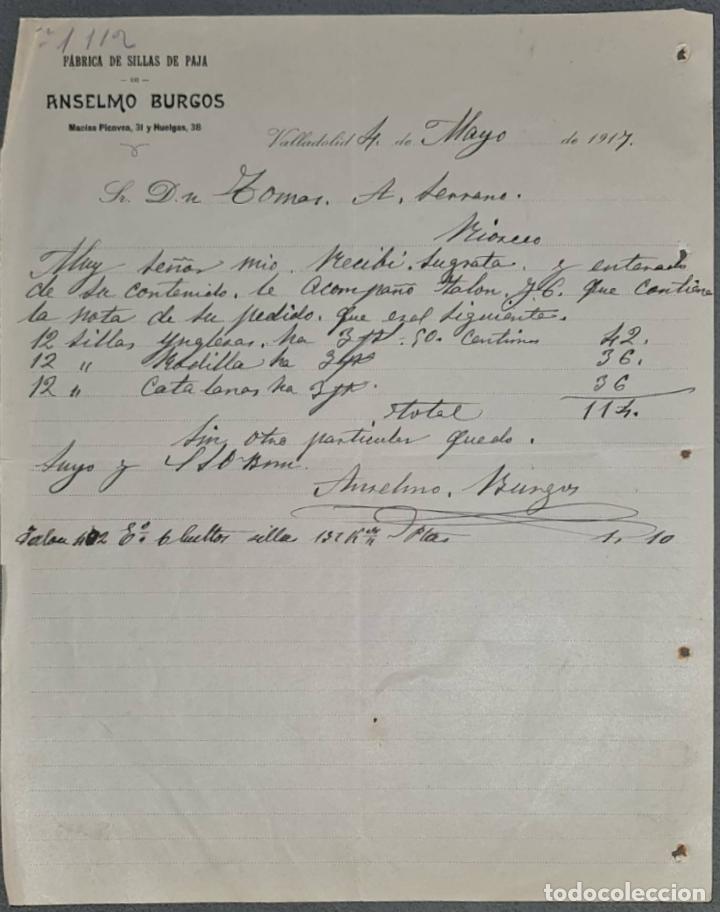 1112
FÁBRICA DE SILLAS DE PAJA
— DE —
ANSELMO BURGOS
Macías Picavea, 31 y Huelgas, 38
Valladolid 4 de Mayo de 1917.
Sr. D.n Tomas. A. Serrano.
Rioseco
Muy Señor mio. Recibi. sugrata. y enterado
de su contenido. le acompaño talon. que contiene
la nota de su pedido. que esel siguiente.
12 sillas ynglesas. ha 3 pts. 50. centimos 42.
12 " Rodilla ha 3 pts 36.
12 " Catalanas ha 3 pts. 36
total 114.
Sin otro particular quedo.
Suyo y
Anselmo. Burgos
Talon 6 bultos sillas 132 K Ptas 1, 10
todocoleccion